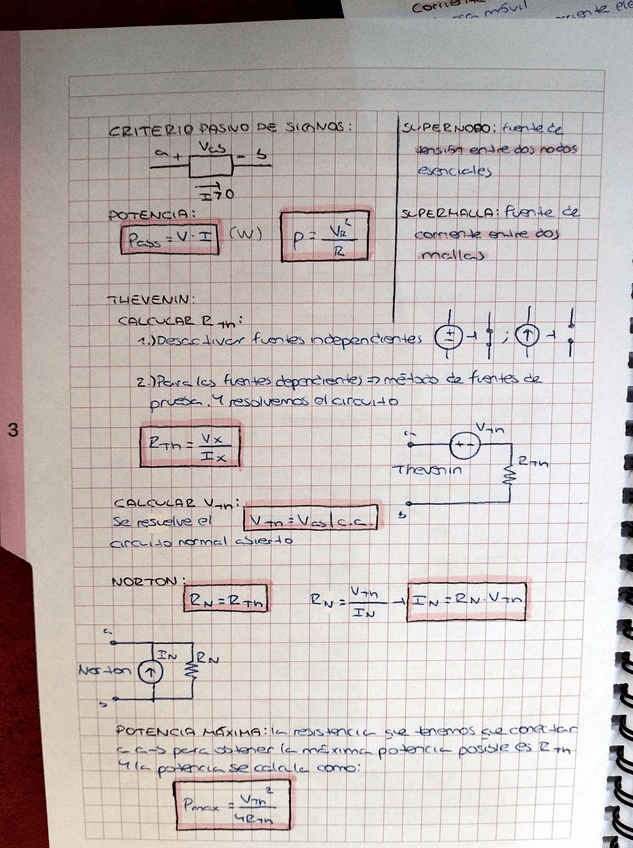 CRITERIO PASIVO DE SIGNOS:
a + Vab - b
I>0
POTENCIA:
Pabs = V · I (W)
P = VR² / R
SUPERNODO: fuente de
tensión entre dos nodos
esenciales
SUPERMALLA: fuente de
corriente entre dos
mallas
THEVENIN:
CALCULAR RTh:
1.) Desactivar fuentes independientes
2.) Para las fuentes dependientes => método de fuentes de
prueba. Y resolvemos el circuito
RTh = Vx / Ix
a
+ - VTh
RTh
Thevenin
b
CALCULAR VTh:
se resuelve el
circuito normal abierto
VTh = Vab | c.a.
NORTON:
RN = RTh
RN = VTh / IN → IN = RN · VTh
a
IN RN
Norton
b
POTENCIA MÁXIMA: la resistencia que tenemos que conectar
a a-b para obtener la máxima potencia posible es RTh
y la potencia se calcula como:
Pmax = VTh² / 4RTh
3